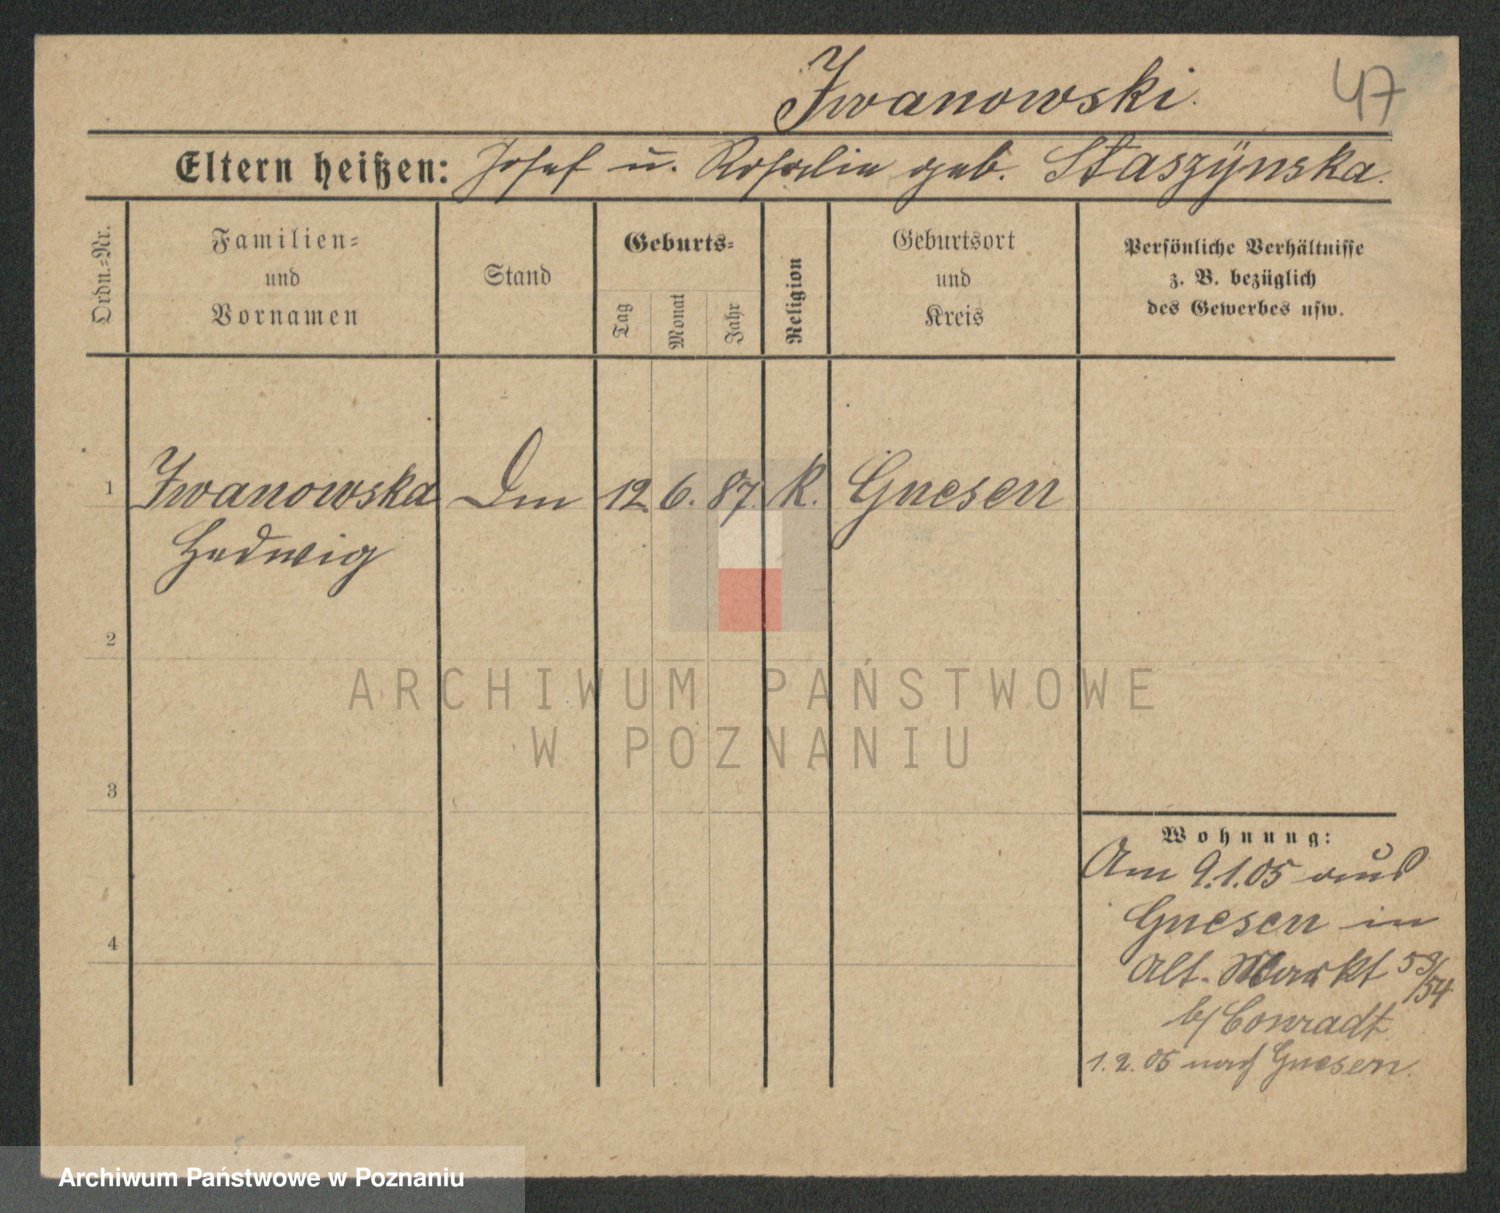 Iwanowski.
47
Eltern heißen: Josef u. Rosalie geb. Staszÿnska.
Ordn.-Nr.
Familien-
und
Vornamen
Stand
Geburts-
Tag
Monat
Jahr
Religion
Geburtsort
und
Kreis
Persönliche Verhältnisse
z. B. bezüglich
des Gewerbes usw.
1 Iwanowska 12. 6. 87. K. Gnesen
Hedwig
2
3
4
Wohnung:
Am 9.1.05 aus
Gnesen in
Alt. Markt 53/54
b/ Conradt
1. 2. 05 nach Gnesen.
ARCHIWUM PAŃSTWOWE
W POZNANIU
Archiwum Państwowe w Poznaniu